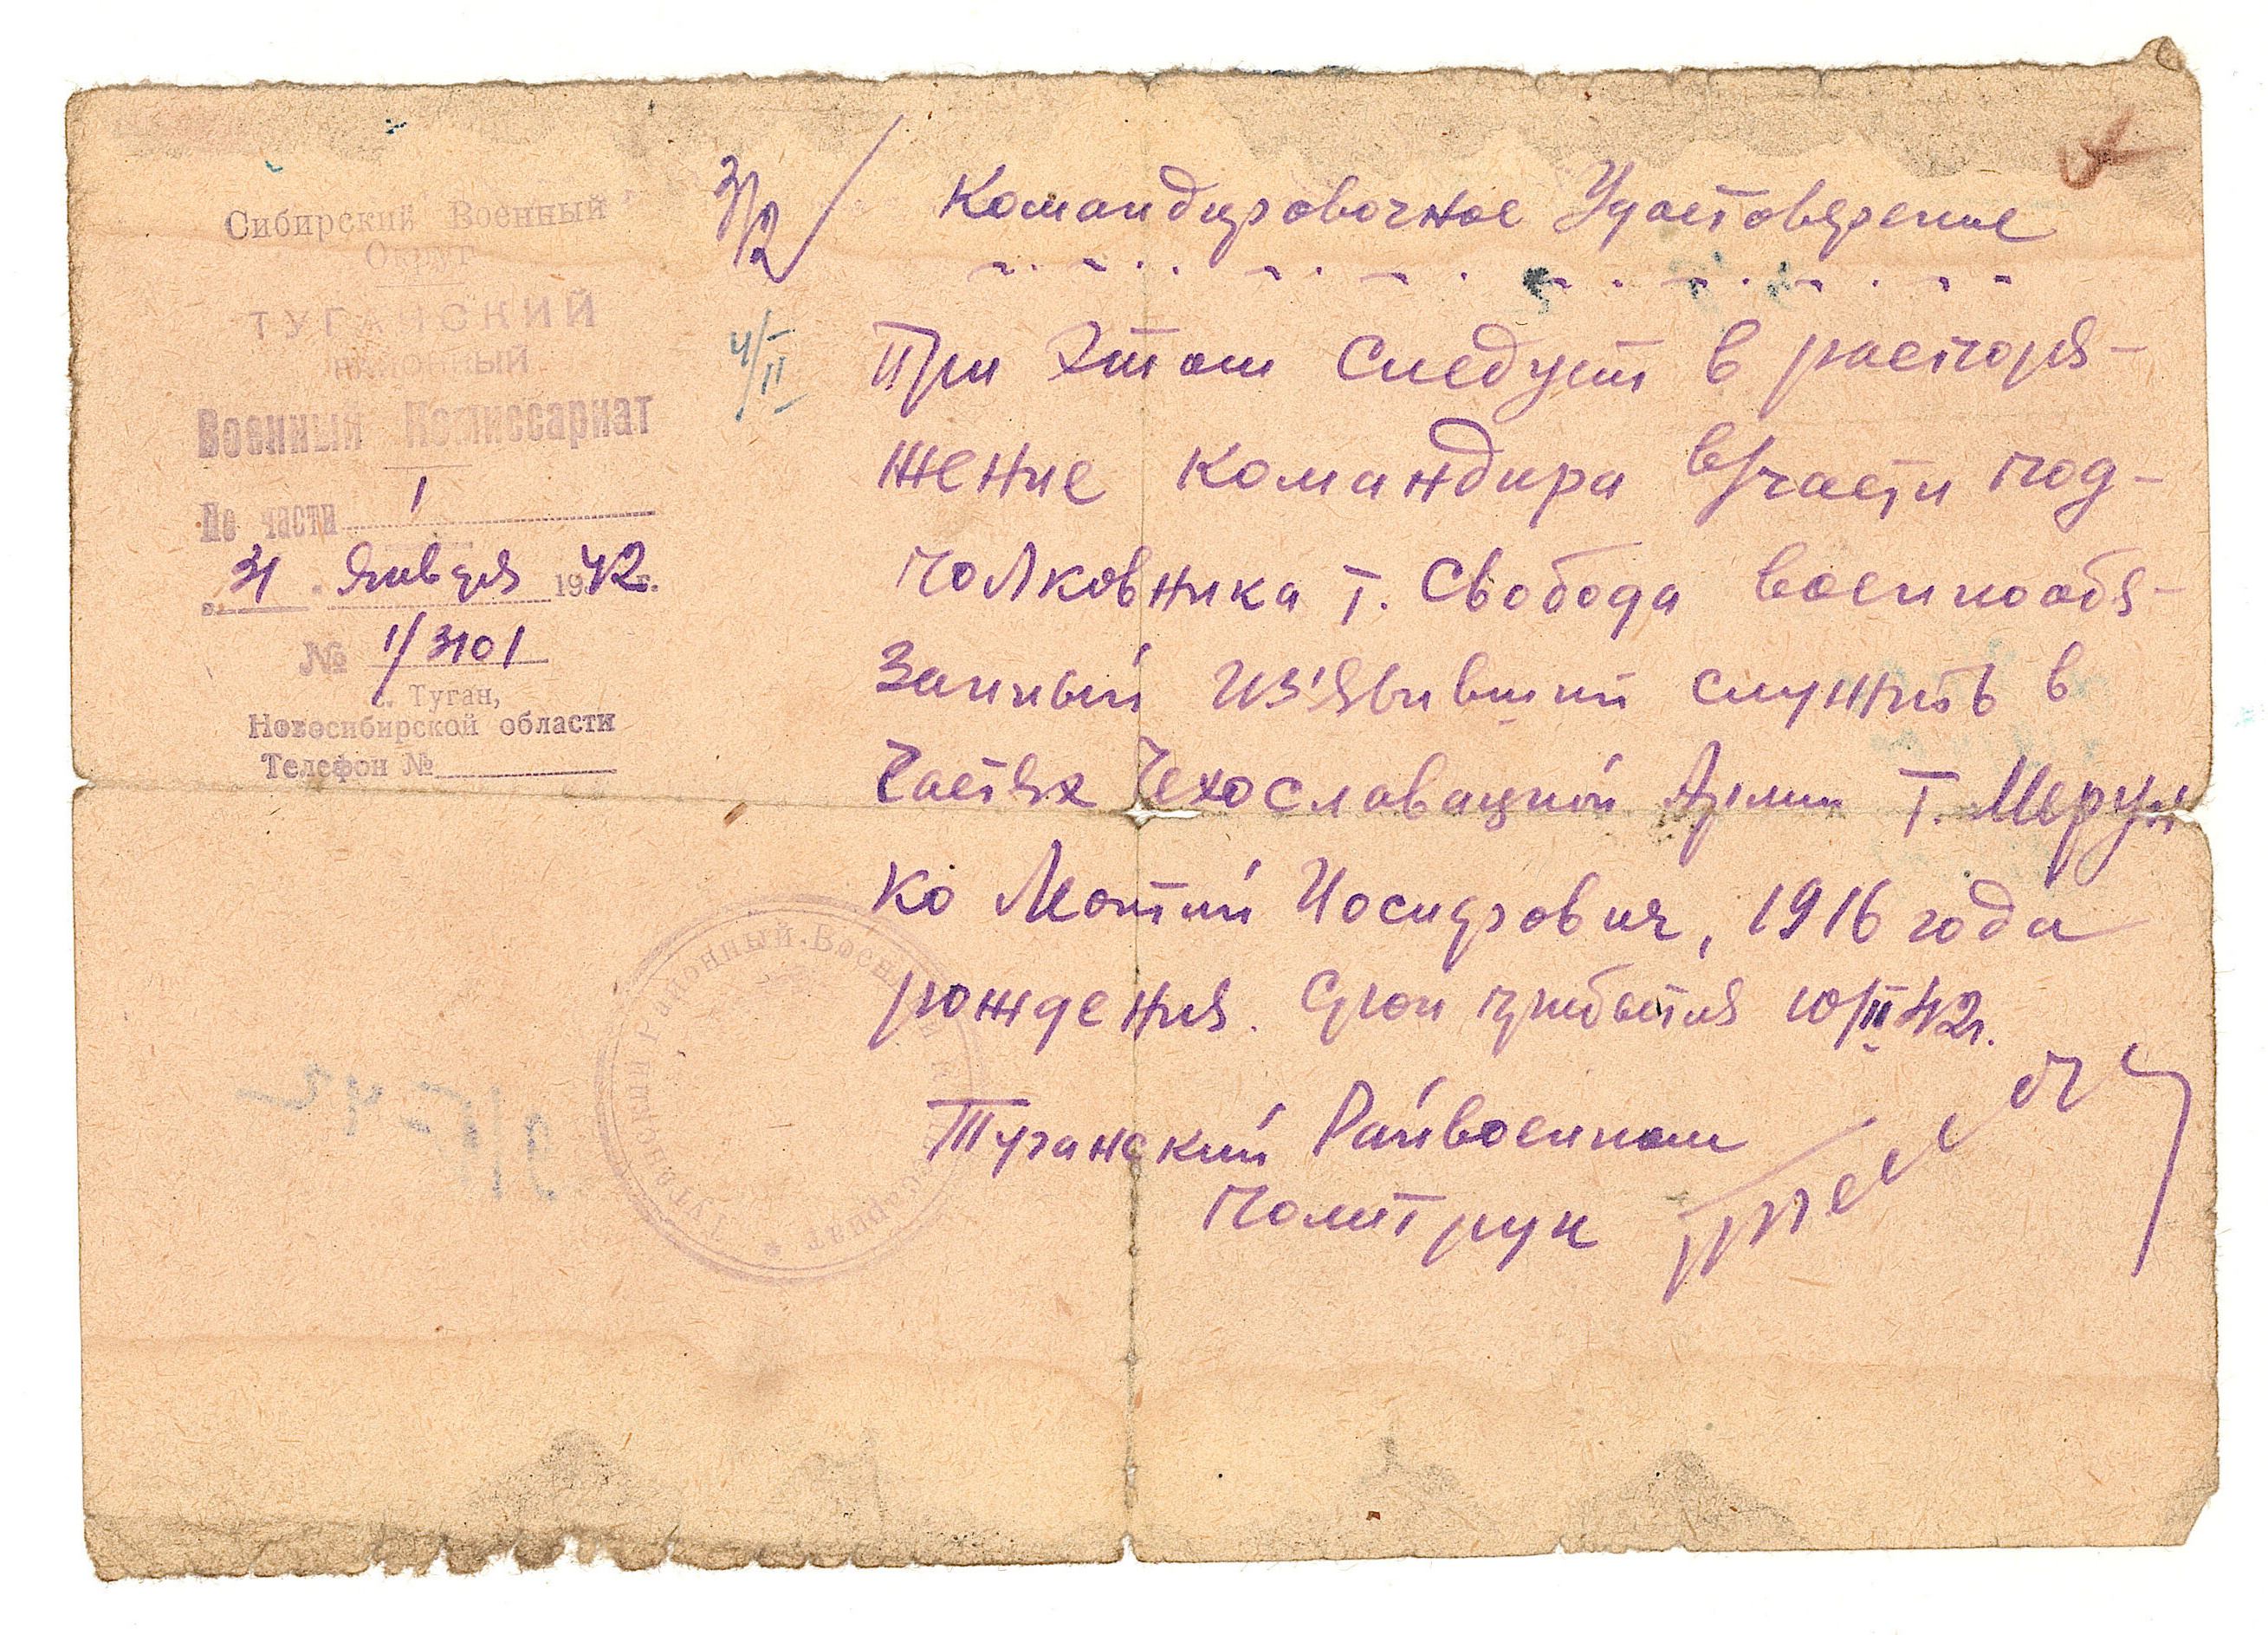 Сибирский Военный
Округ
ТУГАНСКИЙ
РАЙОННЫЙ
Военный Комиссариат
По части I
„ 31 " Января 1942 г.
№ 1/3101
с. Туган,
Новосибирской области
Телефон №
4/II
Командировочное Удостоверение
При этом следует в распоря-
жение командира в/части под-
полковника т. Свобода военнообя-
занный из'явивший служить в
частях Чехословацкой Армии т. Мерун
ко Мотий Иосифович, 1916 года
рождения. Срок прибытия 10/II 42г.
Туганский Райвоенком
Политрук
Туганский Районный Военный Комиссариат *